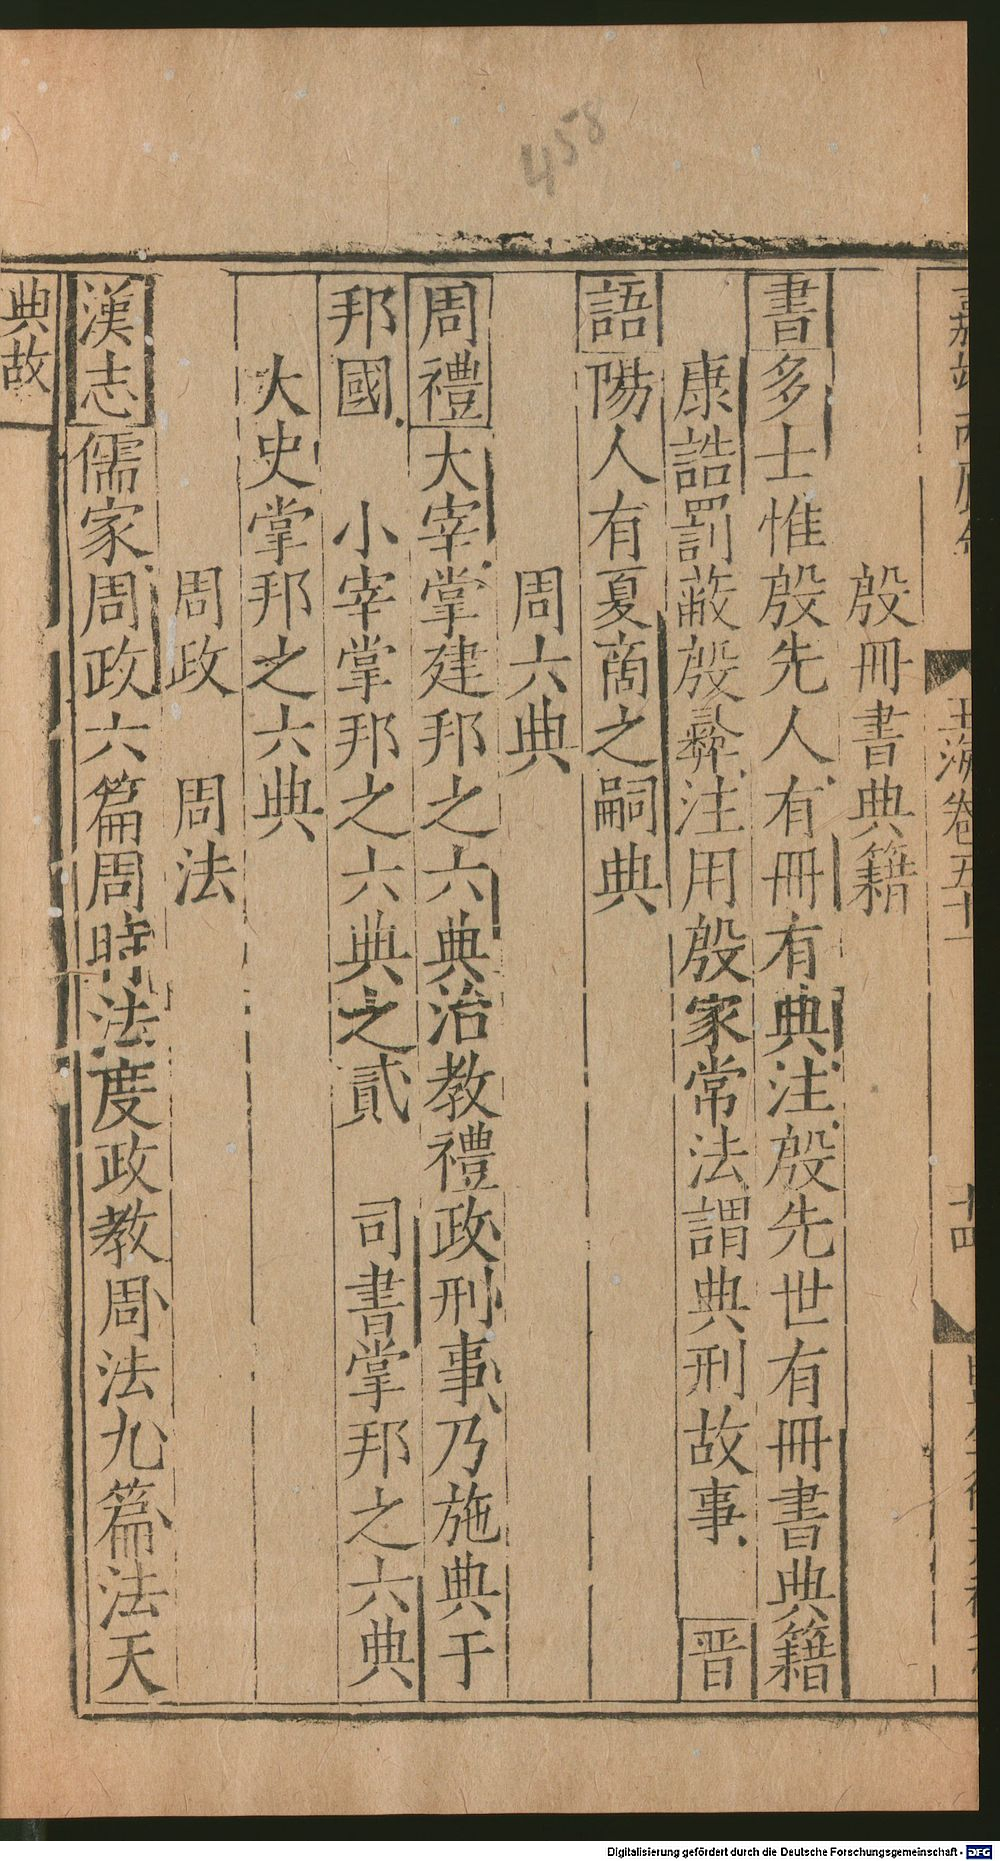 458
玉海卷五十一
十四
殷冊書典籍
書多士惟殷先人有冊有典注殷先世有冊書典籍
康誥罰蔽殷彛注用殷家常法謂典刑故事 晋
語陽人有夏商之嗣典
周六典
周禮大宰掌建邦之六典治教禮政刑事乃施典于
邦國 小宰掌邦之六典之貳 司書掌邦之六典
大史掌邦之六典
周政 周法
漢志儒家周政六篇周時法度政教周法九篇法天
典故
Digitalisierung gefördert durch die Deutsche Forschungsgemeinschaft - DFG